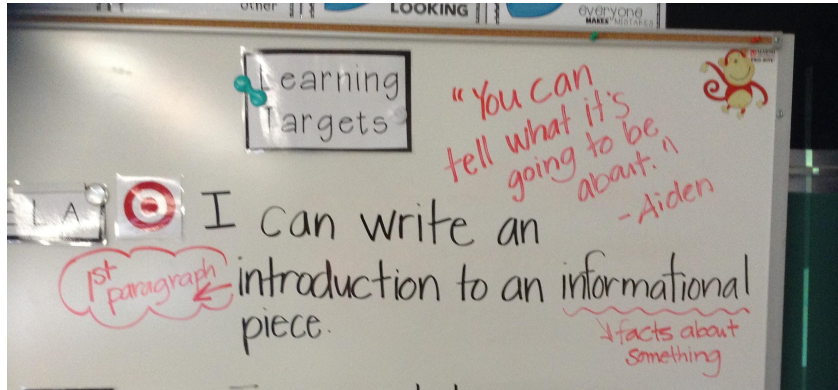 other
LOOKING
everyone
MAKES MISTAKES
Learning
Targets
"You can
tell what it's
going to be
about."
-Aiden
E L A
I can write an
1st
paragraph
introduction to an informational
piece.
facts about
something